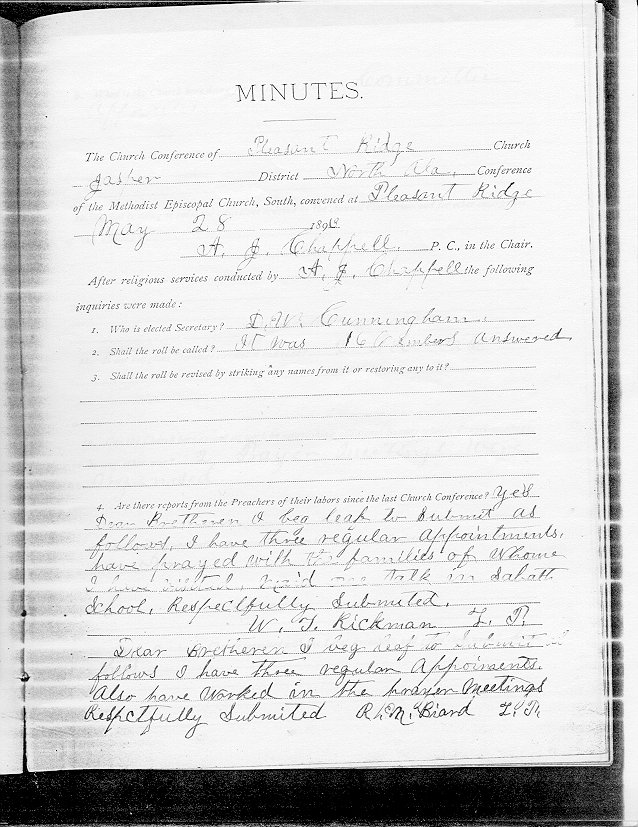 MINUTES.
The Church Conference of Pleasant Ridge Church
Jasper District North Ala. Conference
of the Methodist Episcopal Church, South, convened at Pleasant Ridge
May 28 1898
A. J. Chappell. P. C., in the Chair.
After religious services conducted by A. J. Chappell the following
inquiries were made:
1. Who is elected Secretary? D. W. Cunningham.
2. Shall the roll be called? It was 16 members answered
3. Shall the roll be revised by striking any names from it or restoring any to it?
4. Are there reports from the Preachers of their labors since the last Church Conference? Yes
Dear Bretheren I beg leaf to Submit as
follows, I have three regular appointments,
have prayed with the families of Whome
I have visited, maid one talk in Sabath
School, Respectfully Submited,
W. T. Rickman L. P.
Dear Bretheren I beg leaf to Submit
follows I have three regular Appoiments.
Also have Worked in the prayer Meetings
Respctfully Submited R. M. Biard L. P.